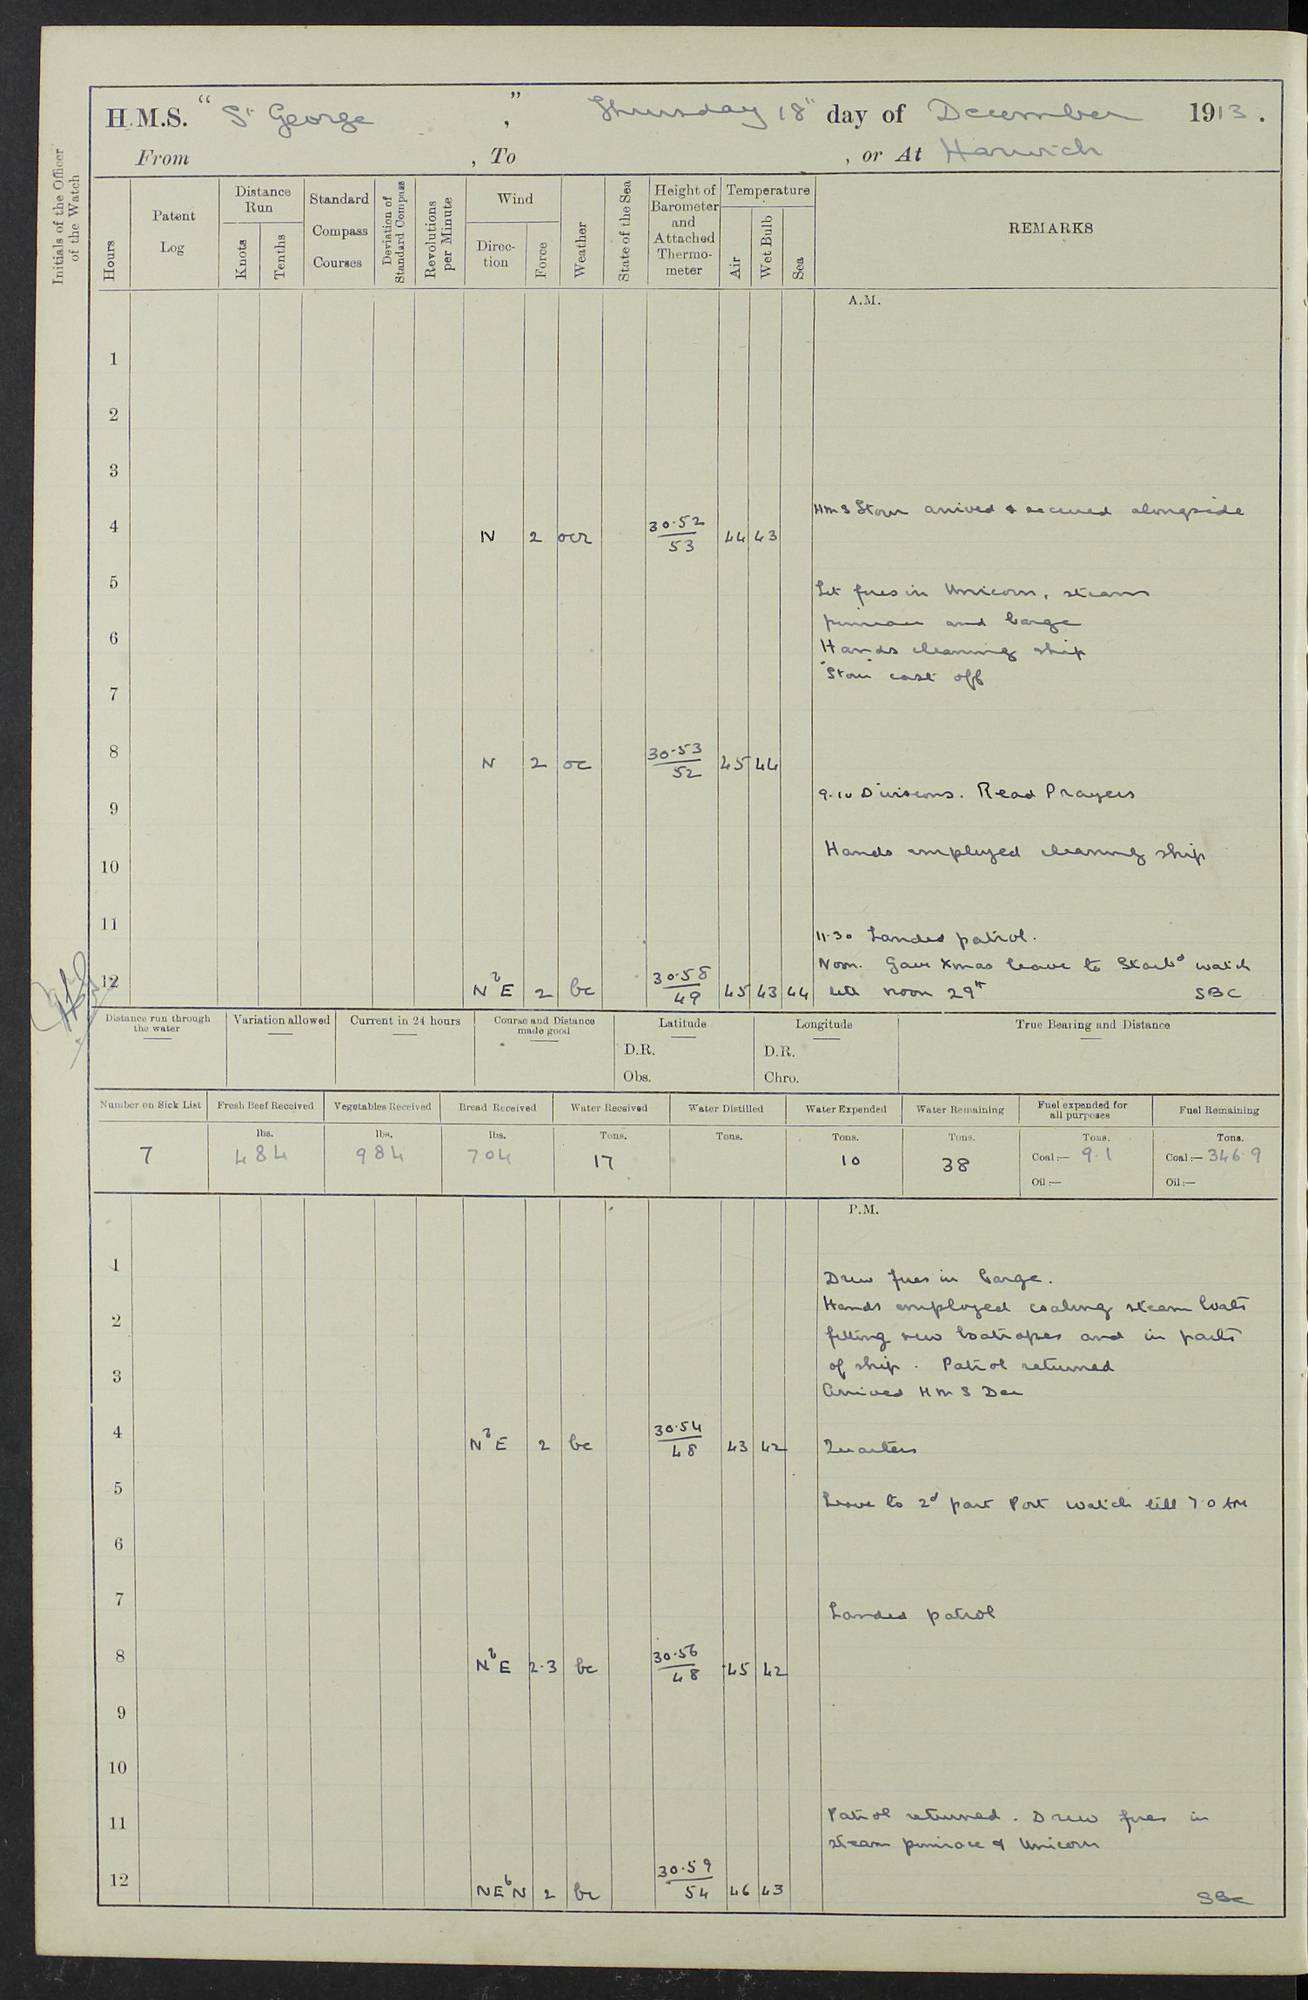 H.M.S. "St George", Thursday 18th day of December 1913.
From , To , or At Harwich
Initials of the Officer of the Watch
Hours
Patent Log
Distance Run
Knots
Tenths
Standard Compass Courses
Deviation of Standard Compass
Revolutions per Minute
Wind
Direction
Force
Weather
State of the Sea
Height of Barometer and Attached Thermometer
Temperature
Air
Wet Bulb
Sea
REMARKS
A.M.
1
2
3
HMS Stour arrived & secured alongside
4 N 2 ocr 30.52/53 44 43
5
Lit fires in Unicorn, steam
pinnace and barge
6
Hands cleaning ship
"Stour" cast off
7
8 N 2 oc 30.53/52 45 44
9.10 Divisions. Read Prayers
9
Hands employed cleaning ship
10
11
11.30 Landed patrol.
Noon. Gave Xmas leave to Starbd watch
12 NbE 2 bc 30.58/49 45 43 44 till noon 29th SBC
Distance run through the water
Variation allowed
Current in 24 hours
Course and Distance made good
Latitude
Longitude
True Bearing and Distance
D.R. D.R.
Obs. Chro.
Number on Sick List
Fresh Beef Received
Vegetables Received
Bread Received
Water Received
Water Distilled
Water Expended
Water Remaining
Fuel expended for all purposes
Fuel Remaining
lbs. lbs. lbs. Tons. Tons. Tons. Tons. Tons. Tons.
7 484 984 704 17 10 38 Coal:— 9.1 Coal:— 346.9
Oil:— Oil:—
P.M.
1
Drew fires in barge.
Hands employed coaling steam boats
2
fitting new boatropes and in parts
of ship. Patrol returned
3
Arrived HMS Dee
4 NbE 2 bc 30.54/48 43 42 Quarters
5
Leave to 2d part Port watch till 7.0 AM
6
7
Landed patrol
8 NbE 2.3 bc 30.56/48 45 42
9
10
11
Patrol returned. Drew fires in
steam pinnace & Unicorn
12 NEbN 2 bc 30.59/54 46 43
SBC